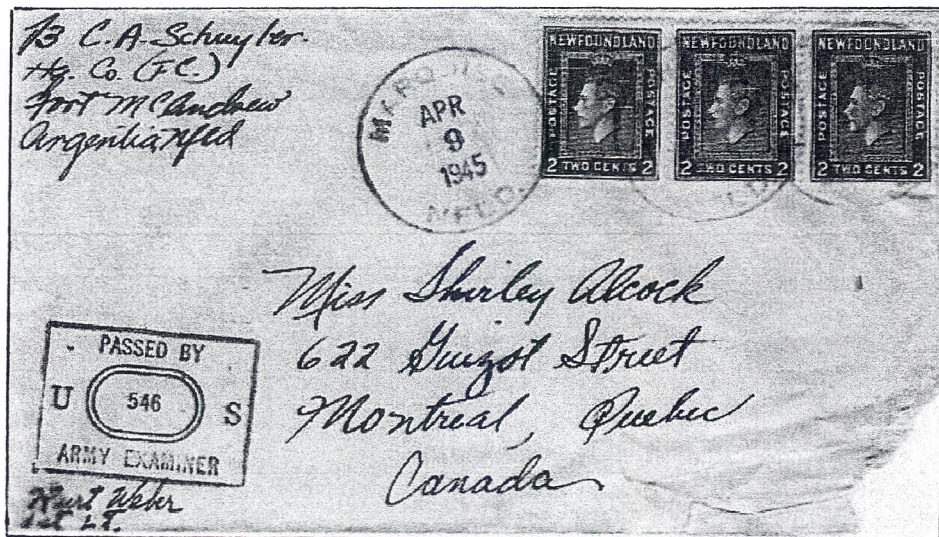 T/3 C.A. Schuyler.
Hq. Co. (F.C.)
Fort McAndrew
Argentia, Nfld
MARQUISE
APR
9
1945
NFLD.
NEWFOUNDLAND
POSTAGE
POSTAGE
2 TWO CENTS 2
NEWFOUNDLAND
POSTAGE
POSTAGE
2 TWO CENTS 2
NEWFOUNDLAND
POSTAGE
POSTAGE
2 TWO CENTS 2
Miss Shirley Alcock
622 Guizot Street
Montreal, Quebec
Canada
PASSED BY
U 546 S
ARMY EXAMINER
Kurt Wehr
1st Lt.